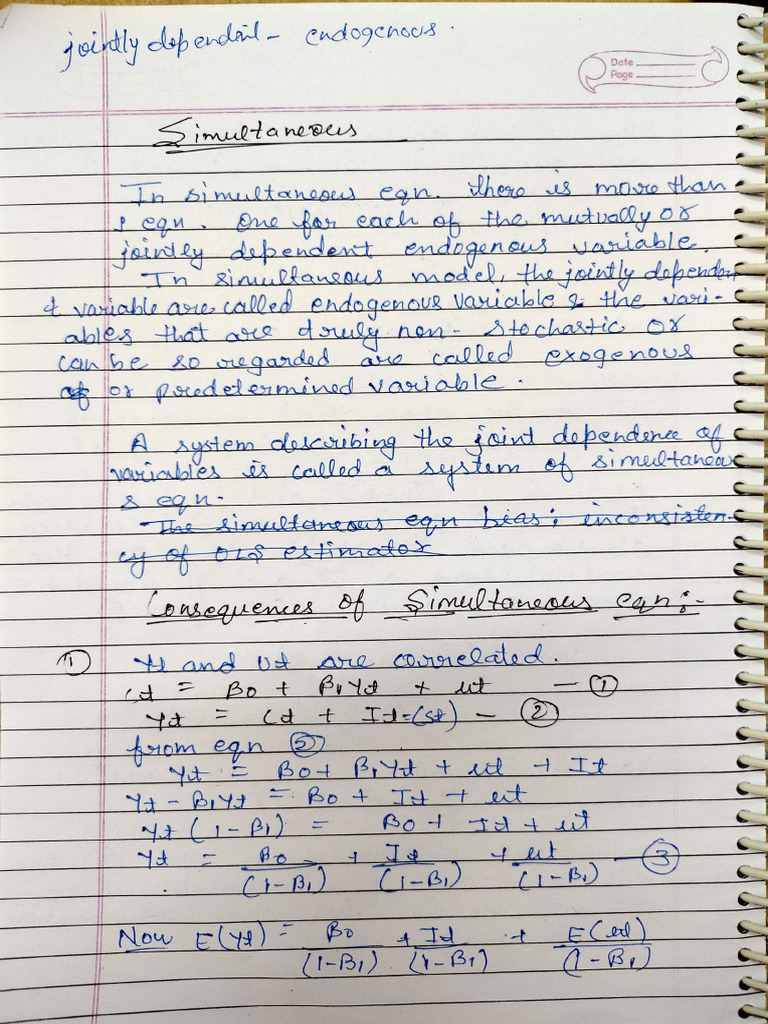 jointly dependent - endogenous.
Date
Page
Simultaneous
In simultaneous eqn. there is more than
1 eqn. One for each of the mutually or
jointly dependent endogenous variable.
In simultaneous model, the jointly depende
nt variable are called endogenous variable & the vari-
ables that are truly non-stochastic or
can be so regarded are called exogenous
or predetermined variable.
A system describing the joint dependence of
variables is called a system of simultaneou
s eqn.
The simultaneous eqn bias; inconsisten-
cy of OLS estimator
Consequences of Simultaneous eqn:-
① Yt and Ut are correlated.
Ct = B0 + B1Yt + ut — ①
Yt = Ct + It=(St) — ②
from eqn ②
Yt = B0 + B1Yt + ut + It
Yt - B1Yt = B0 + It + ut
Yt (1 - B1) = B0 + It + ut
Yt = B0/(1-B1) + It/(1-B1) + ut/(1-B1) — ③
Now E(Yt) = B0/(1-B1) + It/(1-B1) + E(ut)/(1-B1)